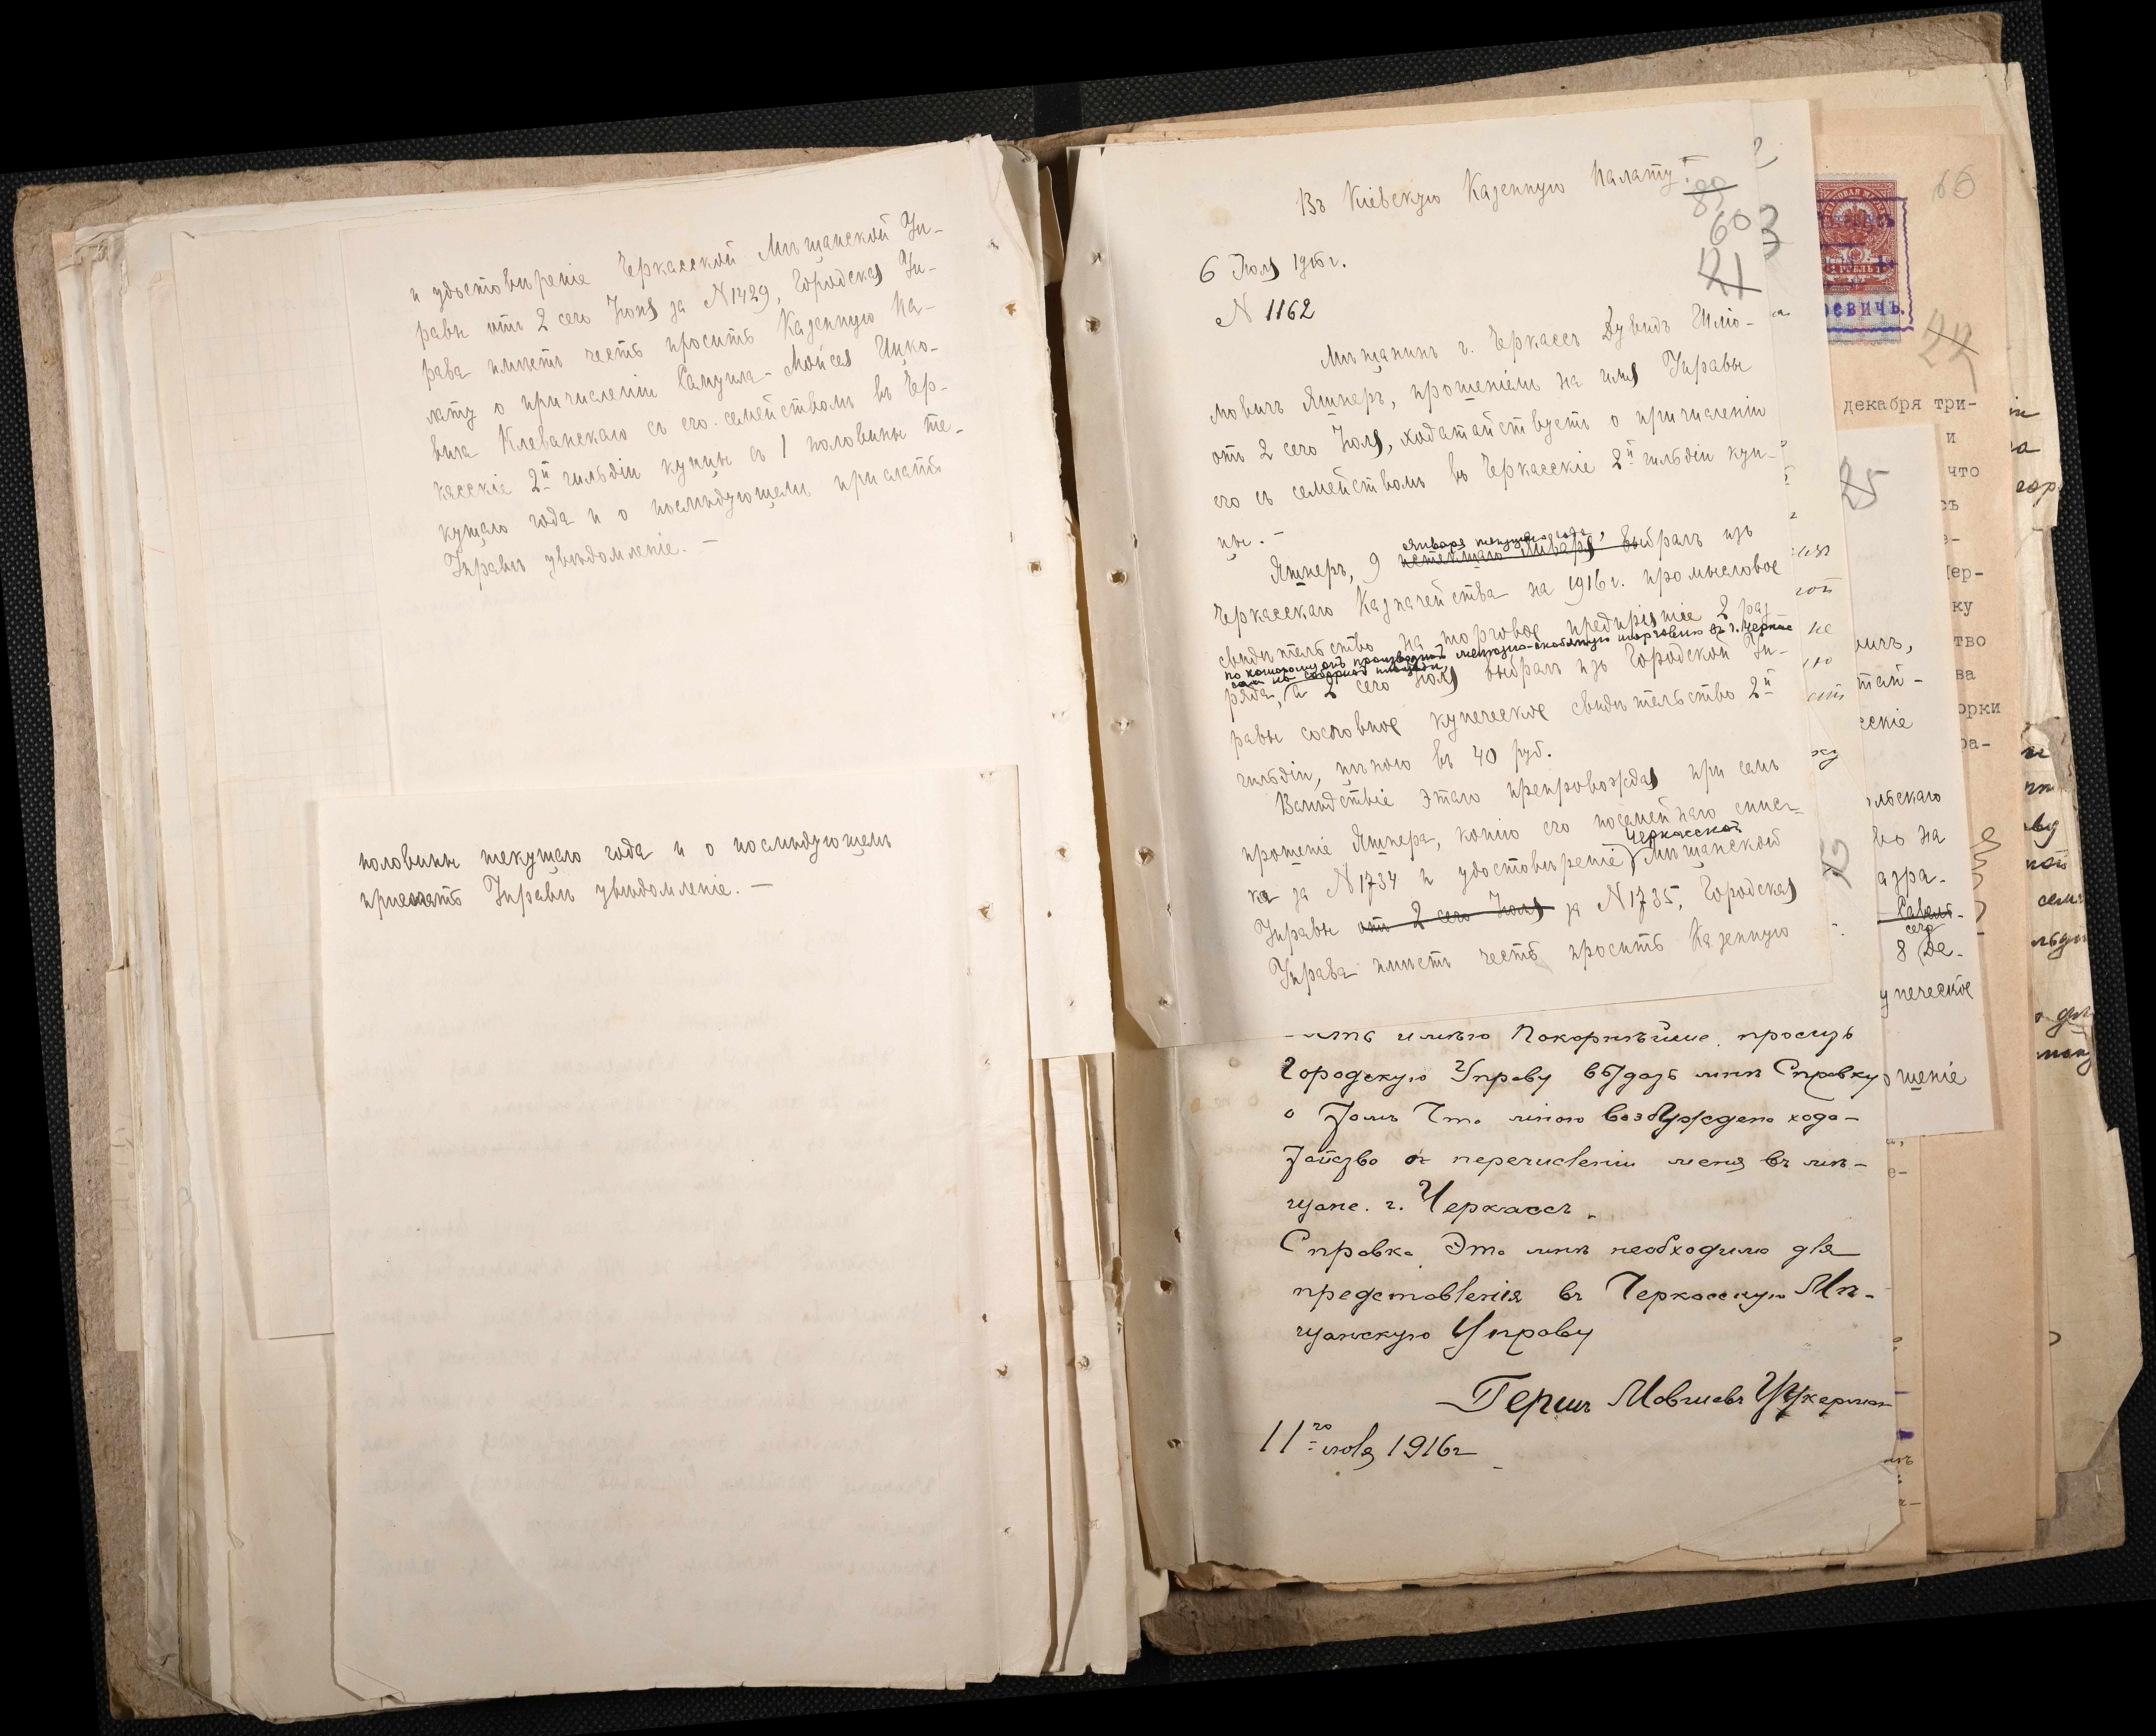 и удостовѣреніе Черкасской Мѣщанской Уп-
равы отъ 2 сего Іюня за N 1429, Городская Уп-
рава имѣетъ честь просить Казенную Па-
лату о причисленіи Самуила-Мойсея Ицко-
вича Клеванскаго съ его семействомъ въ Чер-
касскіе 2й гильдіи купцы съ 1 половины те-
кущаго года и о послѣдующемъ прислать
Управѣ увѣдомленіе. —
половины текущаго года и о послѣдующемъ
прислать Управѣ увѣдомленіе. —
Въ Кіевскую Казенную Палату.
89
60
21
3
6 Іюля 1916 г.
N 1162
Мѣщанинъ г. Черкассъ Дувидъ Шліо-
мовичъ Яшнеръ, прошеніемъ на имя Управы
отъ 2 сего Іюля, ходатайствуетъ о причисленіи
его съ семействомъ въ Черкасскіе 2й гильдіи куп-
цы. —
января текущаго года,
Яшнеръ, 9 истекшаго Января выбралъ изъ
Черкасскаго Казначейства на 1916 г. промысловое
свидѣтельство на торговое предпріятіе 2 раз-
по которому онъ производитъ торговлю въ г. Черкас
сахъ на Соборной площади,
ряда, и 2 сего Іюля выбралъ изъ Городской Уп-
равы сословное купеческое свидѣтельство 2й
гильдіи, цѣною въ 40 руб.
Вслѣдствіе этого препровождая при семъ
прошеніе Яшнера, копію его посемейнаго списка
Черкасской
ка за N 1734 и удостовѣреніе Мѣщанской
Управы отъ 2 сего Іюля за N 1735, Городская
Управа имѣетъ честь просить Казенную
имѣю Покорнѣйше просить
Городскую Управу выдать мнѣ Справку
о томъ что мною возбуждено хода-
тайство о перечисленіи меня въ мѣ-
щане г. Черкассъ.
Справка Эта мнѣ необходима для
представленія въ Черкасскую Мѣ-
щанскую Управу
Гершъ Мовшевъ Цукерман
11го июля 1916 г
66
22
декабря три-
и
что
ку
тво
ва
орки
ра-
25
8 Де-
сего
купеческое